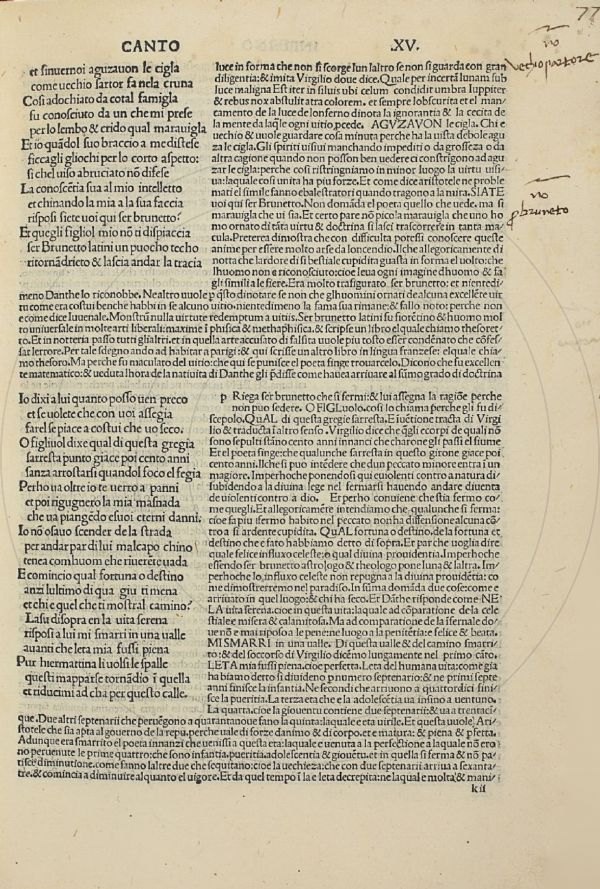 77
CANTO XV.
no
Vechio sartore
et sinuernoi aguzauon le cigla
come uecchio sartor fa nela cruna
Cosi adochiato da cotal famigla
fu conosciuto da un che mi prese
per lo lembo & crido qual marauigla
Et io quãdol suo braccio a me distese
ficcagli gliochi per lo corto aspetto:
si chel uiso abruciato nõ difese
La conoscẽtia sua al mio intelletto
et chinando la mia a la sua faccia
risposi siete uoi qui ser brunetto?
Et quegli figliol mio nõ ti dispiaccia
se r Brunetto latini un puocho techo
ritornãdrieto & lascia andar la tracia
luce in forma che non si scorge lun laltro se non si guarda con gran
diligentia: & imita Virgilio doue dice. Quale per incertã lunam sub
luce maligna Est iter in siluis ubi celum condidit umbra Iuppiter
& rebus nox abstulit atra colorem. et sempre lobscurita et el man/
camento de la luce de lonferno dinota la ignorantia & la cecita de
la mente da laq̃le ogni uitio p̱cede. AGVZAVON le cigla. Chi e
uechio & uuole guardare cosa minuta perche ha la uista debole agu/
za le cigla. Gli spiriti uisiui manchando impediti o da grosseza o da
altra cagione quando non posson ben uedere ci constrigono ad agu/
zar le cigla: perche cosi ristringniamo in minor luogo la uirtu uisi/
ua: laquale cosi unita ha piu forza. Et come dice aristotele ne proble
mati el simile fanno ebalestratori quando tragono a la mira. SIATE
uoi qui ser Brunetto. Non domãda el poeta quello che uede. ma si
marauigla che ui sia. Et certo pare nõ picola marauigla che uno ho
mo ornato di tãta uirtu & doctrina si lasci trascorrere in tanta ma/
cula. Preterea dimostra che con difficulta potessi conoscere queste
anime per essere molto arse da loncendio. Ilche allegoricamente di
notta che lardore di si bestiale cupidita guasta in forma el uolto: che
lhuomo non e riconosciuto: cioe leua ogni imagine dhuomo & fa
gli simili a le fiere. Era molto trasfigurato ser brunetto: et nientedi/
no
ꝓ bruneto
meno Danthe lo riconobbe. Ne altro uuole p̱ q̃sto dinotare se non che glhuomini ornati de alcuna excellẽte uir/
tu come era costui benche habbi in se alcuno uitio: nientedimeno la fama sua rimane: & fallo noto. perche non
e come dice Iuuenale. Monstrũ nulla uirtute redemptum a uitiis. Ser brunetto latini fu fiorẽtino & huomo mol
to uniuersale in molte arti liberali: maxime ĩ phisica & methaphisica. & scripse un libro el quale chiamo thesoret/
to. Et in notteria passo tutti gli altri. et in quella arte accusato di falsita uuole piu tosto esser condẽnato che cõfes/
sar lerrore. Per tale sdegno ando ad habitar a parigi: & qui scrisse un altro libro in lingua franzese: el quale chia/
mo thesoro. Ma perche fu maculato del uitio: che qui se punisce el poeta finge trouarcelo. Dicono che fu excellen
te matematico: & ueduta lhora de la natiuita di Danthe gli p̱disse come hauea arriuare al sũmo grado di doctrina
Io dixi a lui quanto posso ten preco
et se uolete che con uoi assegia
farel se piace a costui che uo seco.
O figliuol dixe qual di questa gregia
sarresta punto giace poi cento anni
sanza arrostarsi quandol foco el fegia
Perho ua oltre io te uerro a panni
et poi rigugnero la mia masnada
che ua piangẽdo esuoi eterni danni.
Io nõ osauo scender de la strada
per andar par di lui ma lcapo chino
tenea com huom che riuerẽte uada
E comincio qual fortuna o destino
anzi lultimo di qua giu ti mena
et chi e quel che ti mostral camino?
La su di sopra en la uita serena
risposi a lui mi smarri in una ualle
auanti che leta mia fussi piena
Pur hiermattina li uolsi le spalle
questi mapparse tornãdio ĩ quella
et riducimi ad cha per questo calle.
p Riega ser brunetto che si fermi: & lui assegna la ragiõe perche
non puo sedere. O FIGLuolo. cosi lo chiama perche gli fu di/
scepolo. QuAL di questa gregie sarresta. E fictiõe tracta di Virgi
lio & traducta ĩ altro senso. Virgilio dice che q̃gli ecorpi de quali nõ
sono sepulti stãno cento anni innanci che charone gli passi el fiume
Et el poeta finge: che qualunche sarresta in questo girone giace poi
cento anni. Ilche si puo intẽdere che dun peccato minore entra ĩ un
magiore. Imperhoche ponendosi qui euiolenti contro a natura di/
sibidendo a la diuina lege nel fermarsi hauendo andare diuenta
de uiolenti contro a dio. Et perho conuiene che stia fermo co/
me quegli. Et allegoricamẽre intendiamo che qualunche si ferma:
cioe fa piu ifermo habito nel peccato nonha diffensione alcuna cõ/
tro a si ardente cupidita. QuAL fortuna o destino. de la fortuna et
destino che e fato habbiamo detto di sopra. Et par che uoglia dire
quale felice influxo celeste: o qual diuina prouidentia. Imperhoche
essendo ser brunetto astrologo & theologo pone luna & laltra. Im/
perhoche lo influxo celeste non repugna a la diuina prouidẽtia: co
me dimostrerremo nel paradiso. In sũma domãda due cose: come e
arriuato in quel luogo: & chi ha seco. Et Dãthe risponde come .NE/
LA uita serena. cioe in questa uita: laquale ad cõparatione de la cele
stiale e misera & calamitosa. Ma ad comparatione de la ifernale do/
ue nõ e mai riposo a le pene: ne luogo a la penitẽtia: e felice & beata.
MI SMARRI in una ualle. Di questa ualle & del camino smarri/
to: & del soccorso di Virgilio dicẽmo lungamente nel primo cãto.
LETA mia fussi piena. cioe perfecta. Leta del humana uita: come gia
habbiamo detto si diuideno p̱ numero septenario: & ne primi septe
anni finisce la infantia. Ne secondi che arriuono a quattordici fini/
sce la pueritia. La terza eta che e la adolescẽtia ua insino a uentuno.
La quarta. cioe la giouentu contiene due septenarii: & ua a trentaci/
que. Due altri septenarii che peruẽgono a quarantanoue fano la quinta: laquale e eta uirile. Et questa uuole Ari/
stotele che sia apta al gouerno de la repu. perche uale di forze danimo & di corpo. et e matura: & piena & p̱fetta.
Adunque era smarrito el poeta innanzi che uenissi a questa eta: laquale e uenuta a la perfectione a laquale nõ ero
no peruenute le prime quattro: che sono infantia. pueritia. adolescentia & giouẽtu. et in quella si ferma & nõ pa
tisce diminutione. come fanno laltre due che sequitano: cioe la uechieza: che con due septenarii arriua a sexanta/
tre. & comincia a diminuire alquanto el uigore. Et da quel tempo ĩ la e leta decrepita: ne laqual e molta & mani/
kii